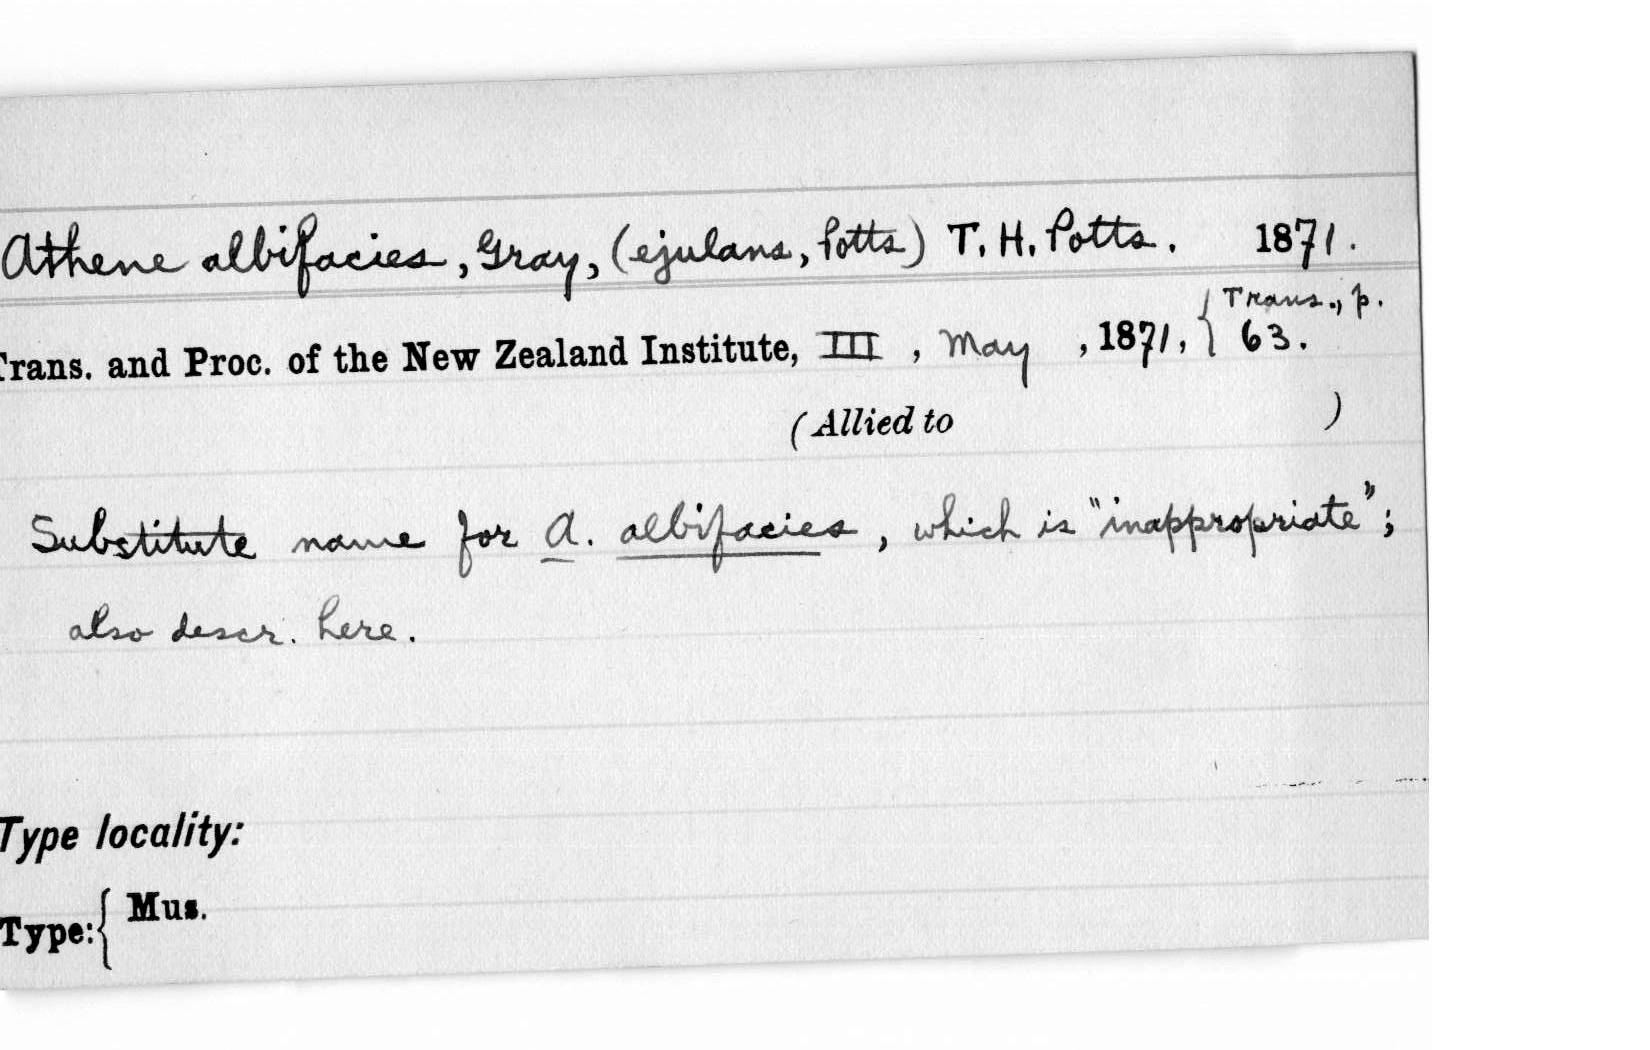 Athene albifacies, Gray, (ejulans, Potts) T. H. Potts. 1871.
Trans. and Proc. of the New Zealand Institute, III, May, 1871, { Trans., p. 63.
(Allied to )
Substitute name for A. albifacies, which is "inappropriate";
also descr. here.
Type locality:
Type: { Mus.